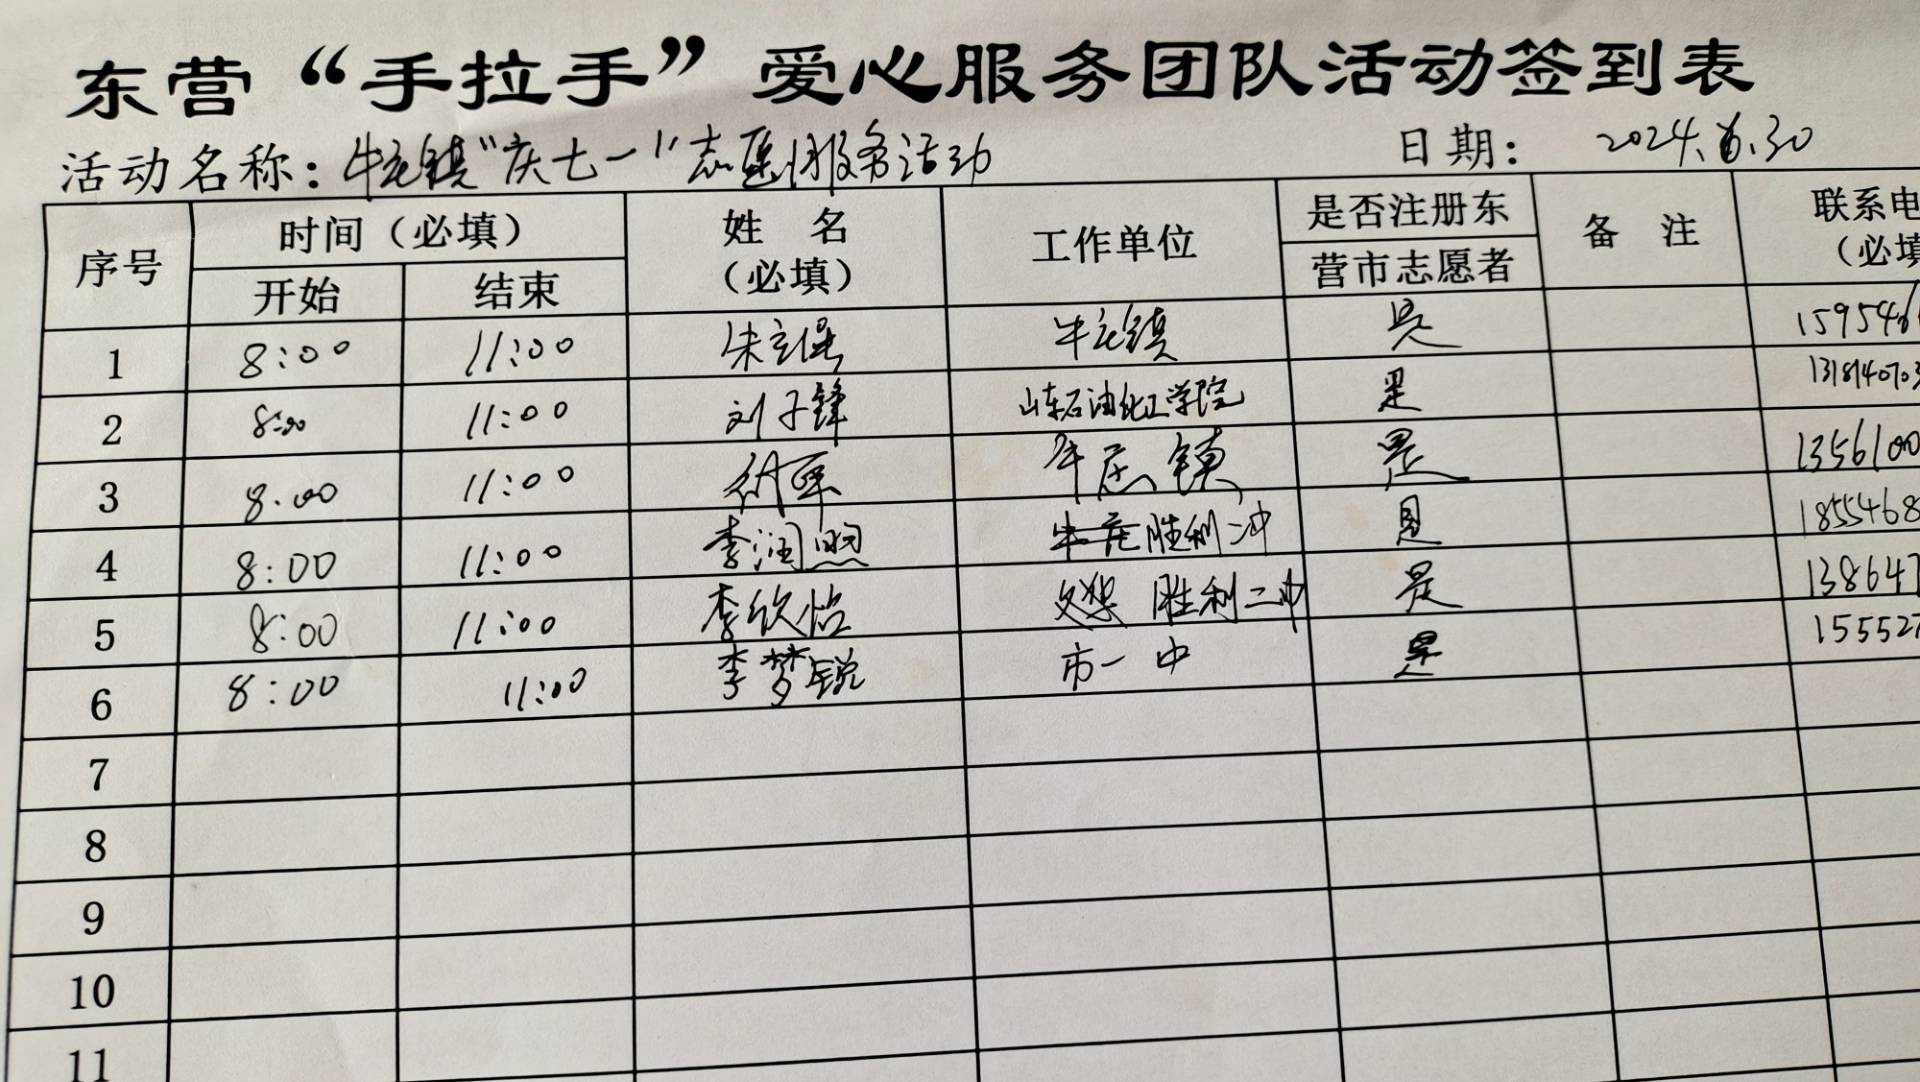 东营“手拉手”爱心服务团队活动签到表
活动名称：牛庄镇“庆七一”志愿服务活动 日期：2024.6.30
序号 时间（必填） 姓名（必填） 工作单位 是否注册东营市志愿者 备注 联系电
（必填
开始 结束
1 8:00 11:00 朱 牛庄镇 是 1595466
2 8:00 11:00 刘子锋 山东石油化工学院 是 131814070
3 8:00 11:00 牛庄镇 是 1356100
4 8:00 11:00 李润煦 胜利二中 是 1855468
5 8:00 11:00 李欣怡 胜利二中 是 138647
6 8:00 11:00 李梦锐 市一中 是 155527
7
8
9
10
11